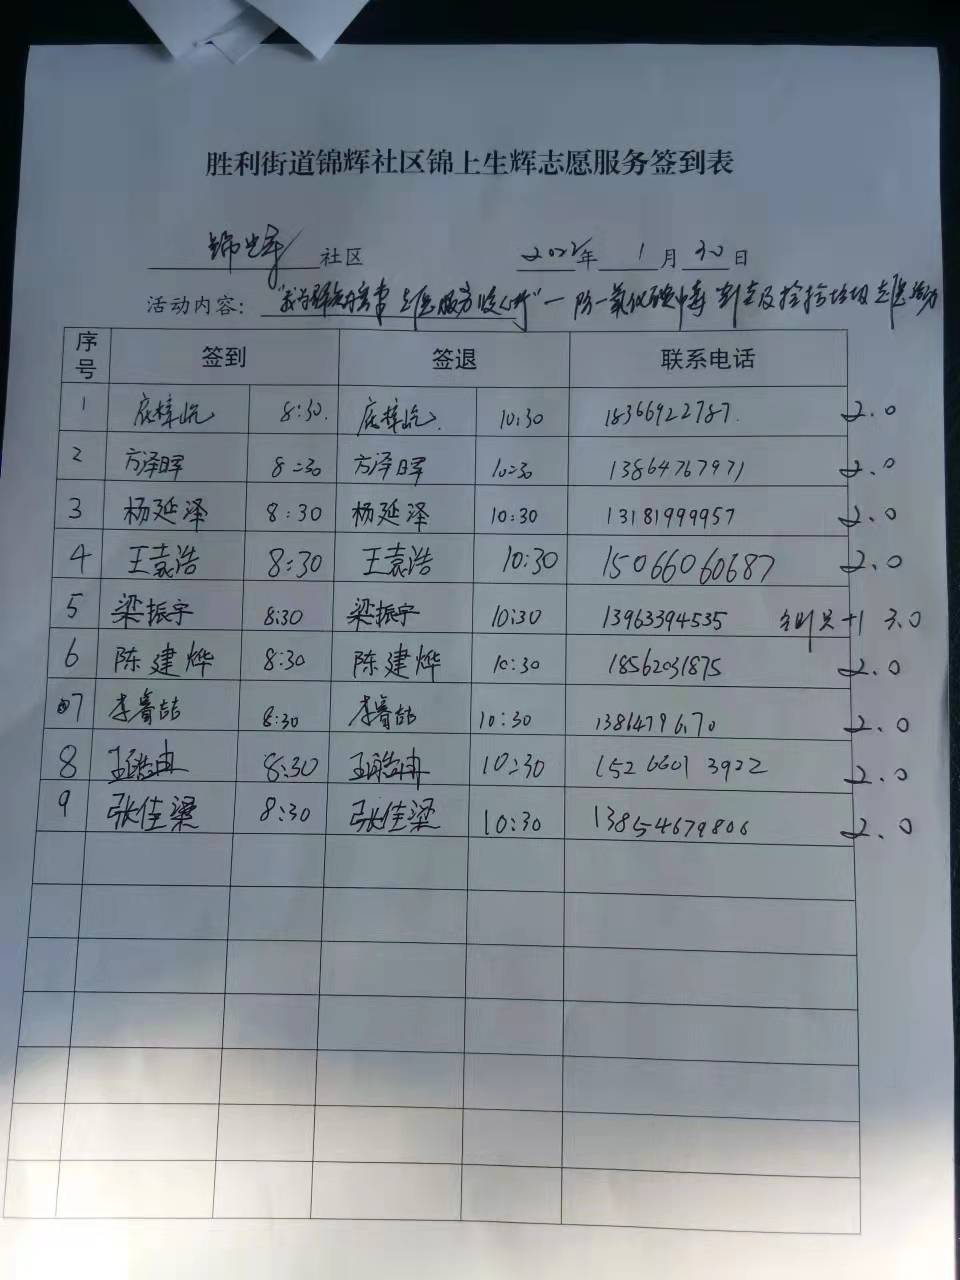 胜利街道锦辉社区锦上生辉志愿服务签到表
锦辉 社区 2022年 1 月 30 日
活动内容: "我为群众办实事 志愿服务暖人心" 一 防一氧化碳中毒 宣传及捡拾垃圾志愿活动
序号 签到 签退 联系电话
1 8:30. 10:30 18366922787. 2.0
2 方泽晖 8:30 方泽晖 10:30 13864767971 2.0
3 杨延泽 8:30 杨延泽 10:30 13181999957 2.0
4 王袁浩 8:30 王袁浩 10:30 15066060687 2.0
5 梁振宇 8:30 梁振宇 10:30 13963394535 +1 3.0
6 陈建烨 8:30 陈建烨 10:30 18562031875 2.0
7 李睿喆 8:30 李睿喆 10:30 2.0
8 8:30 10:30 15266013922 2.0
9 张佳梁 8:30 张佳梁 10:30 13854679806 2.0